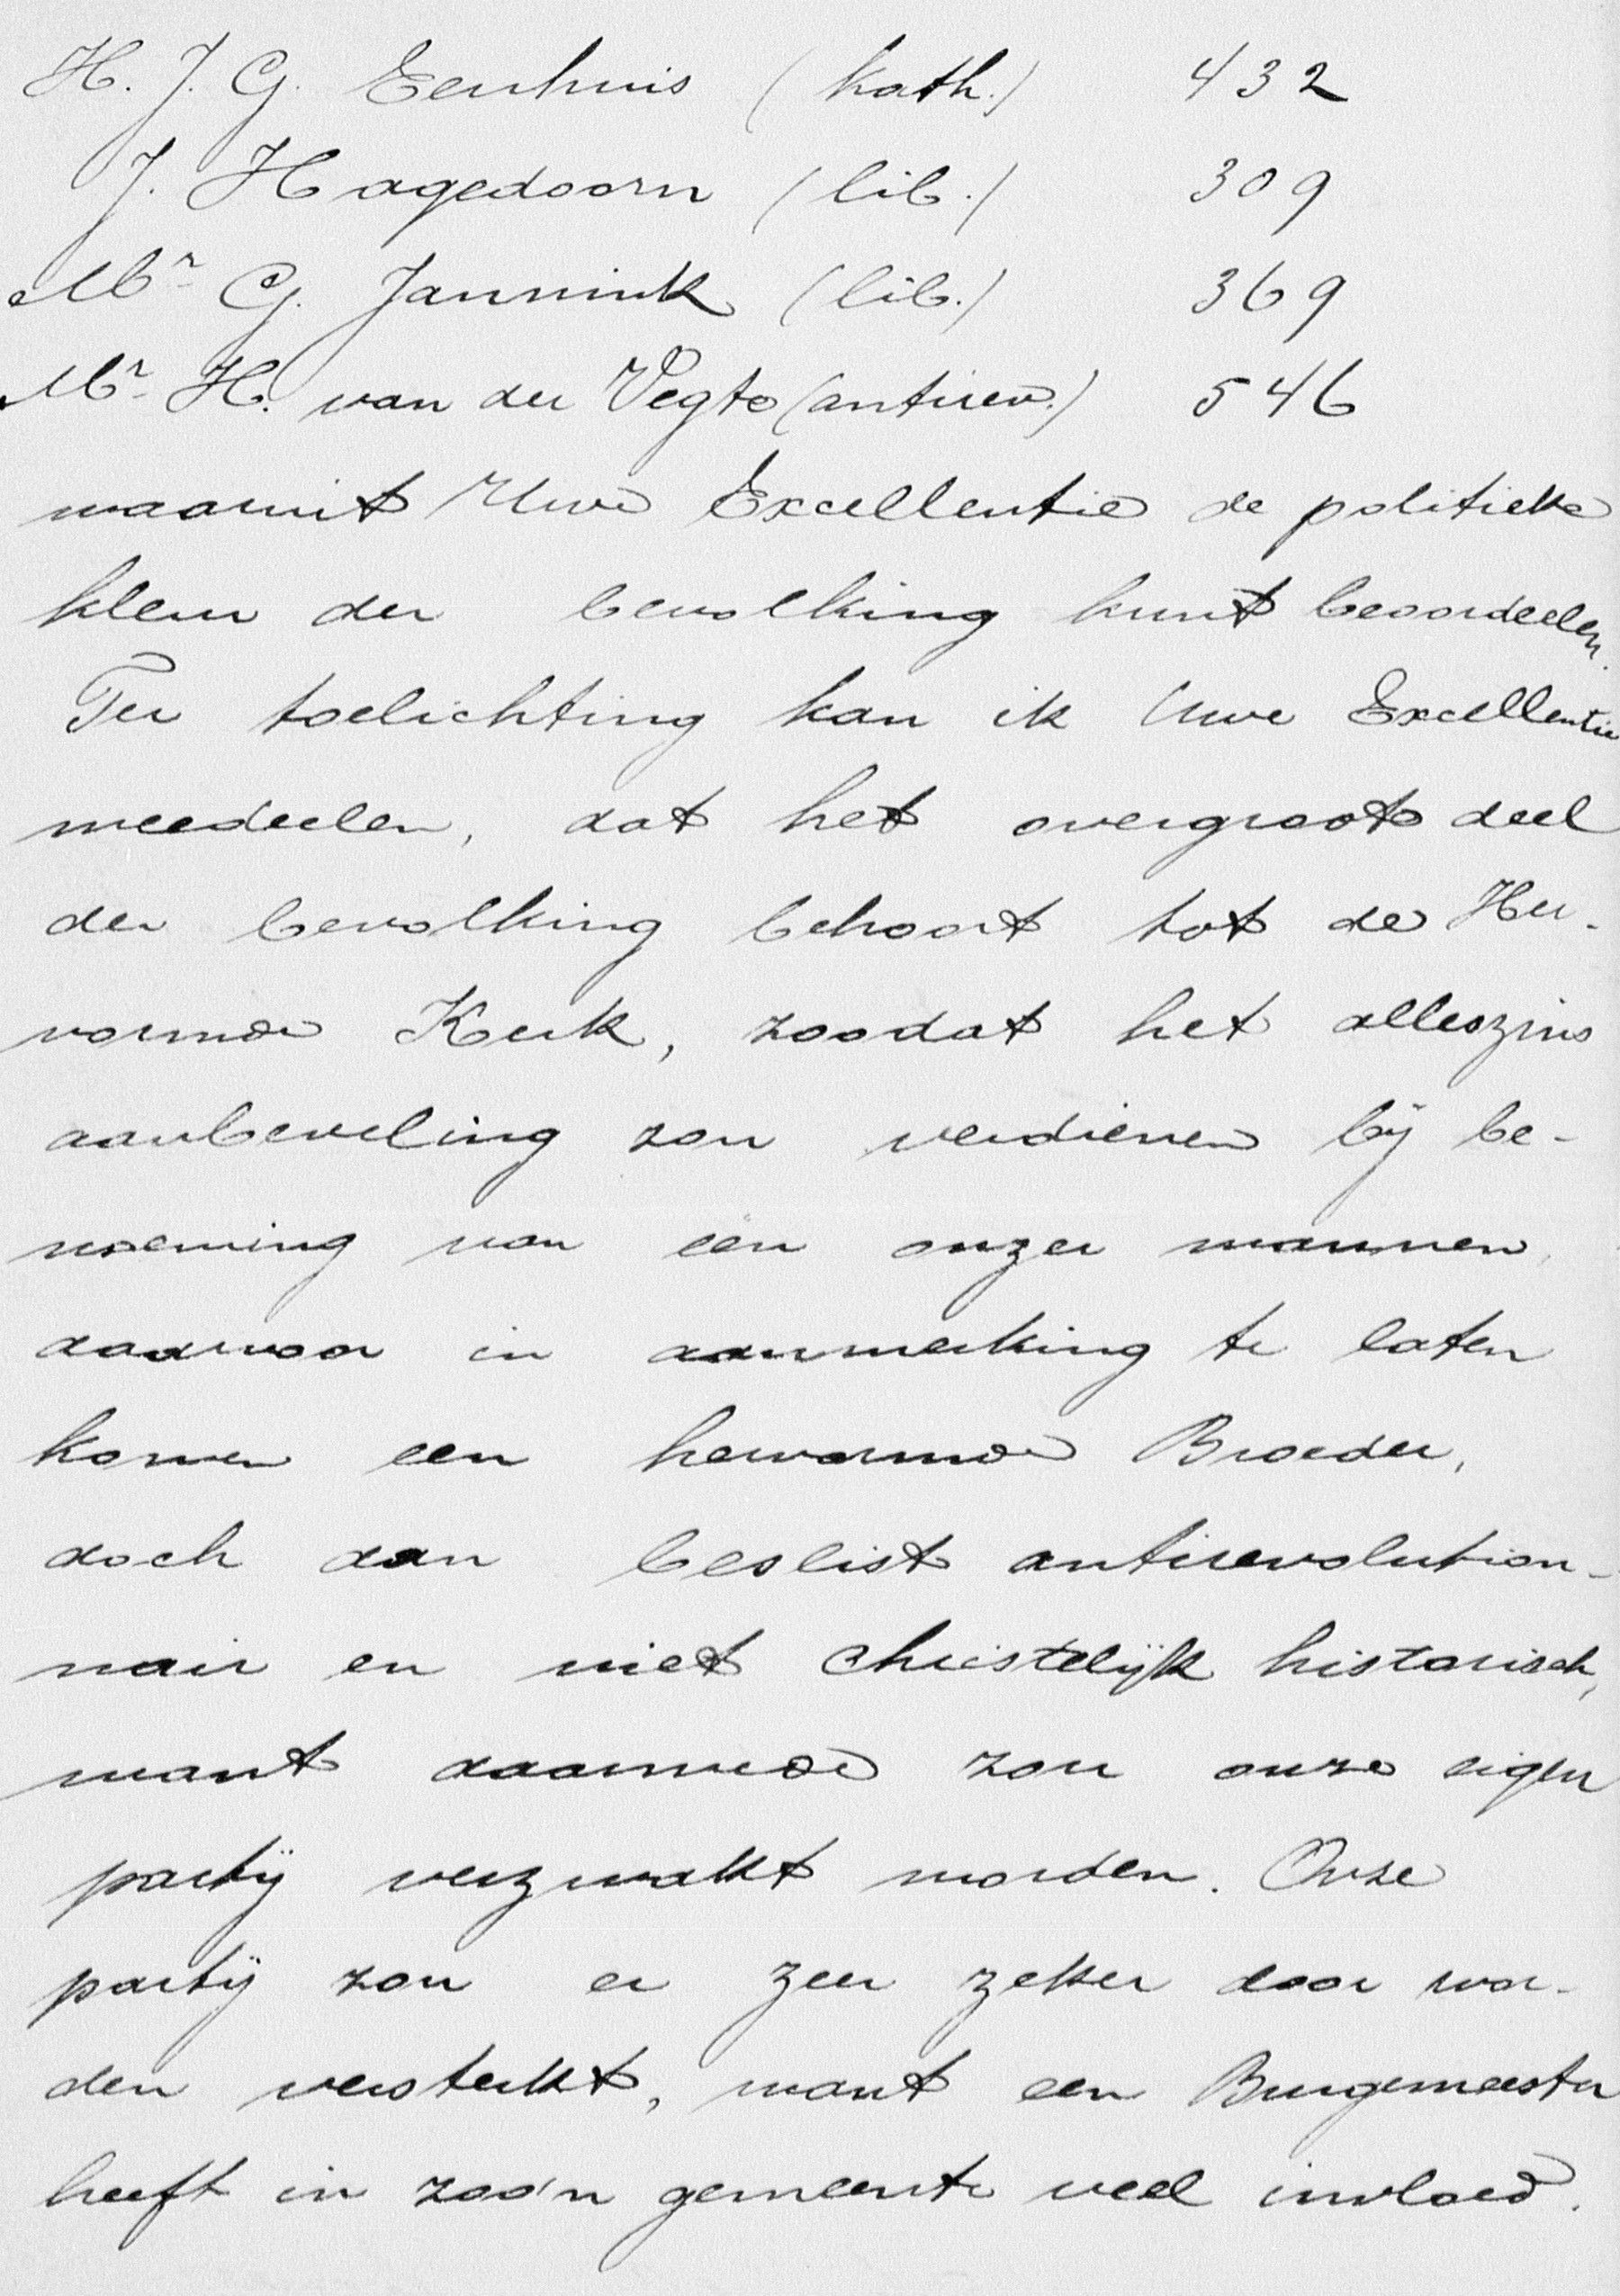 H. J. G. Eenhuis (kath.) 432
J. Hagedoorn (lib.) 309
Mr. G. Jannink (lib.) 369
Mr. H. van der Vegte (antirev.) 546
waaruit Uwe Excellentie de politieke
kleur der bevolking kunt beoordeelen.
Ter toelichting kan ik Uwe Excellentie
meedeelen, dat het overgroote deel
der bevolking behoort tot de Her-
vormde Kerk, zoodat het alleszins
aanbeveling zou verdienen bij be-
noeming van één onzer mannen,
daarvoor in aanmerking te laten
komen een hervormde Broeder,
doch dan beslist antirevolution-
nair en niet christelijk historisch,
want daarmede zou onze eigen
partij verzwakt worden. Onze
partij zou er zeer zeker door wor-
den versterkt, want een Burgemeester
heeft in zoo'n gemeente veel invloed.